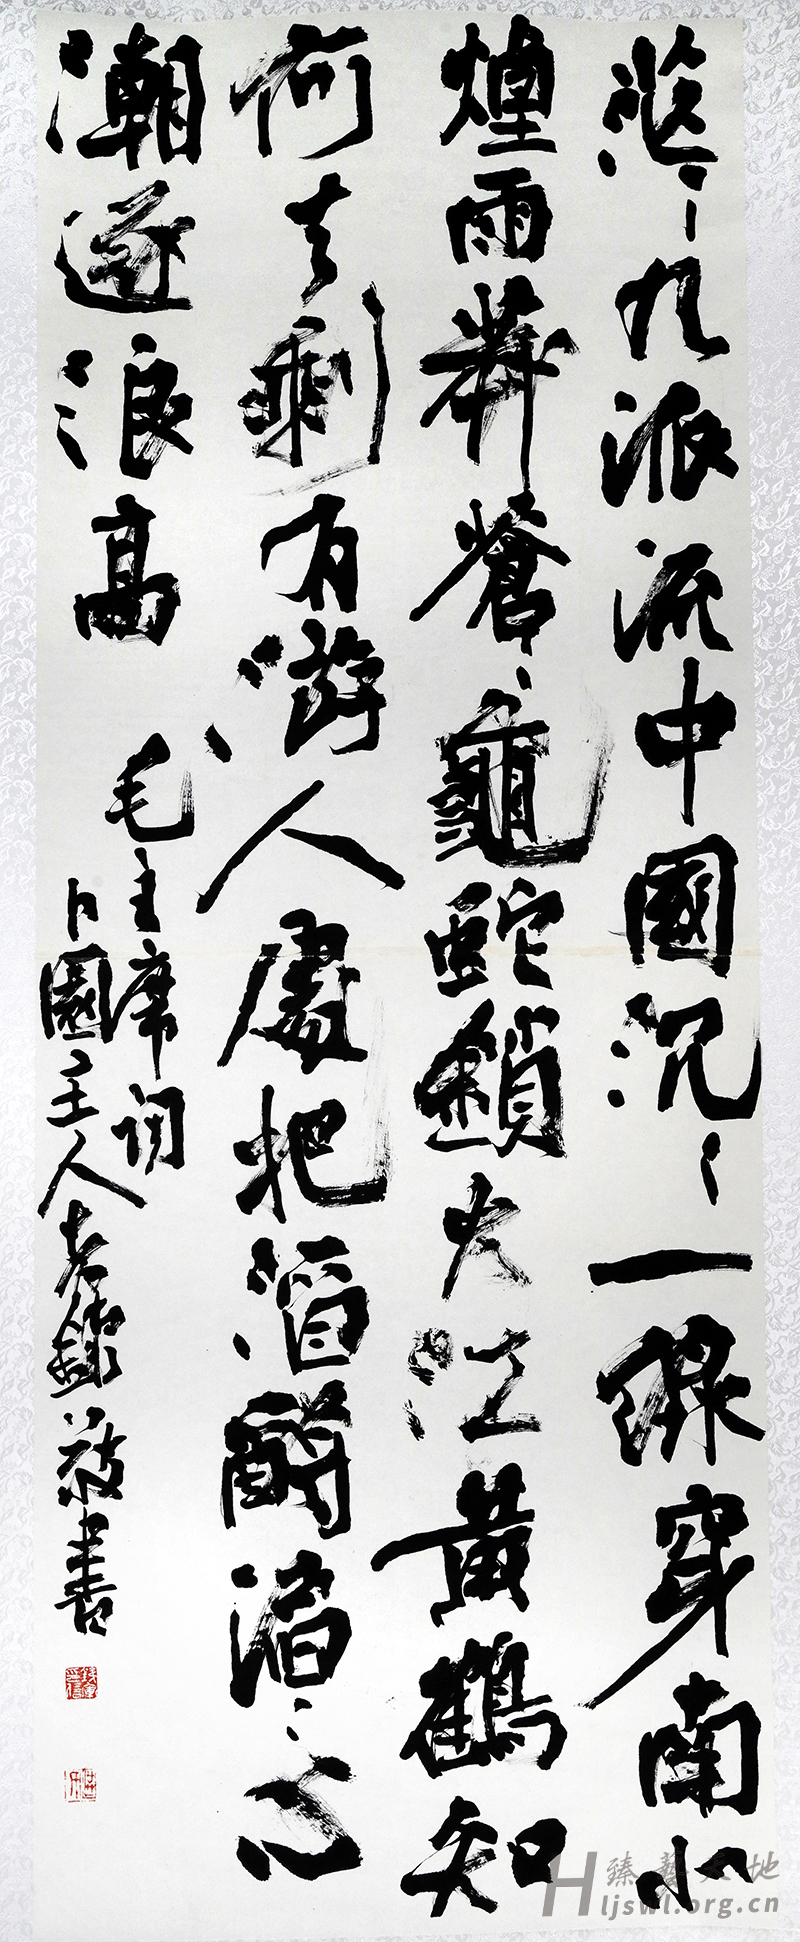 茫〻九派流中國沉〻一線穿南北
煙雨莽蒼〻龜蛇鎖大江黃鶴知
何去剩有游人處把酒酹滔〻心
潮逐浪高
毛主席詞
卜園主人老敬書
臻藝天地
Hljswl.org.cn